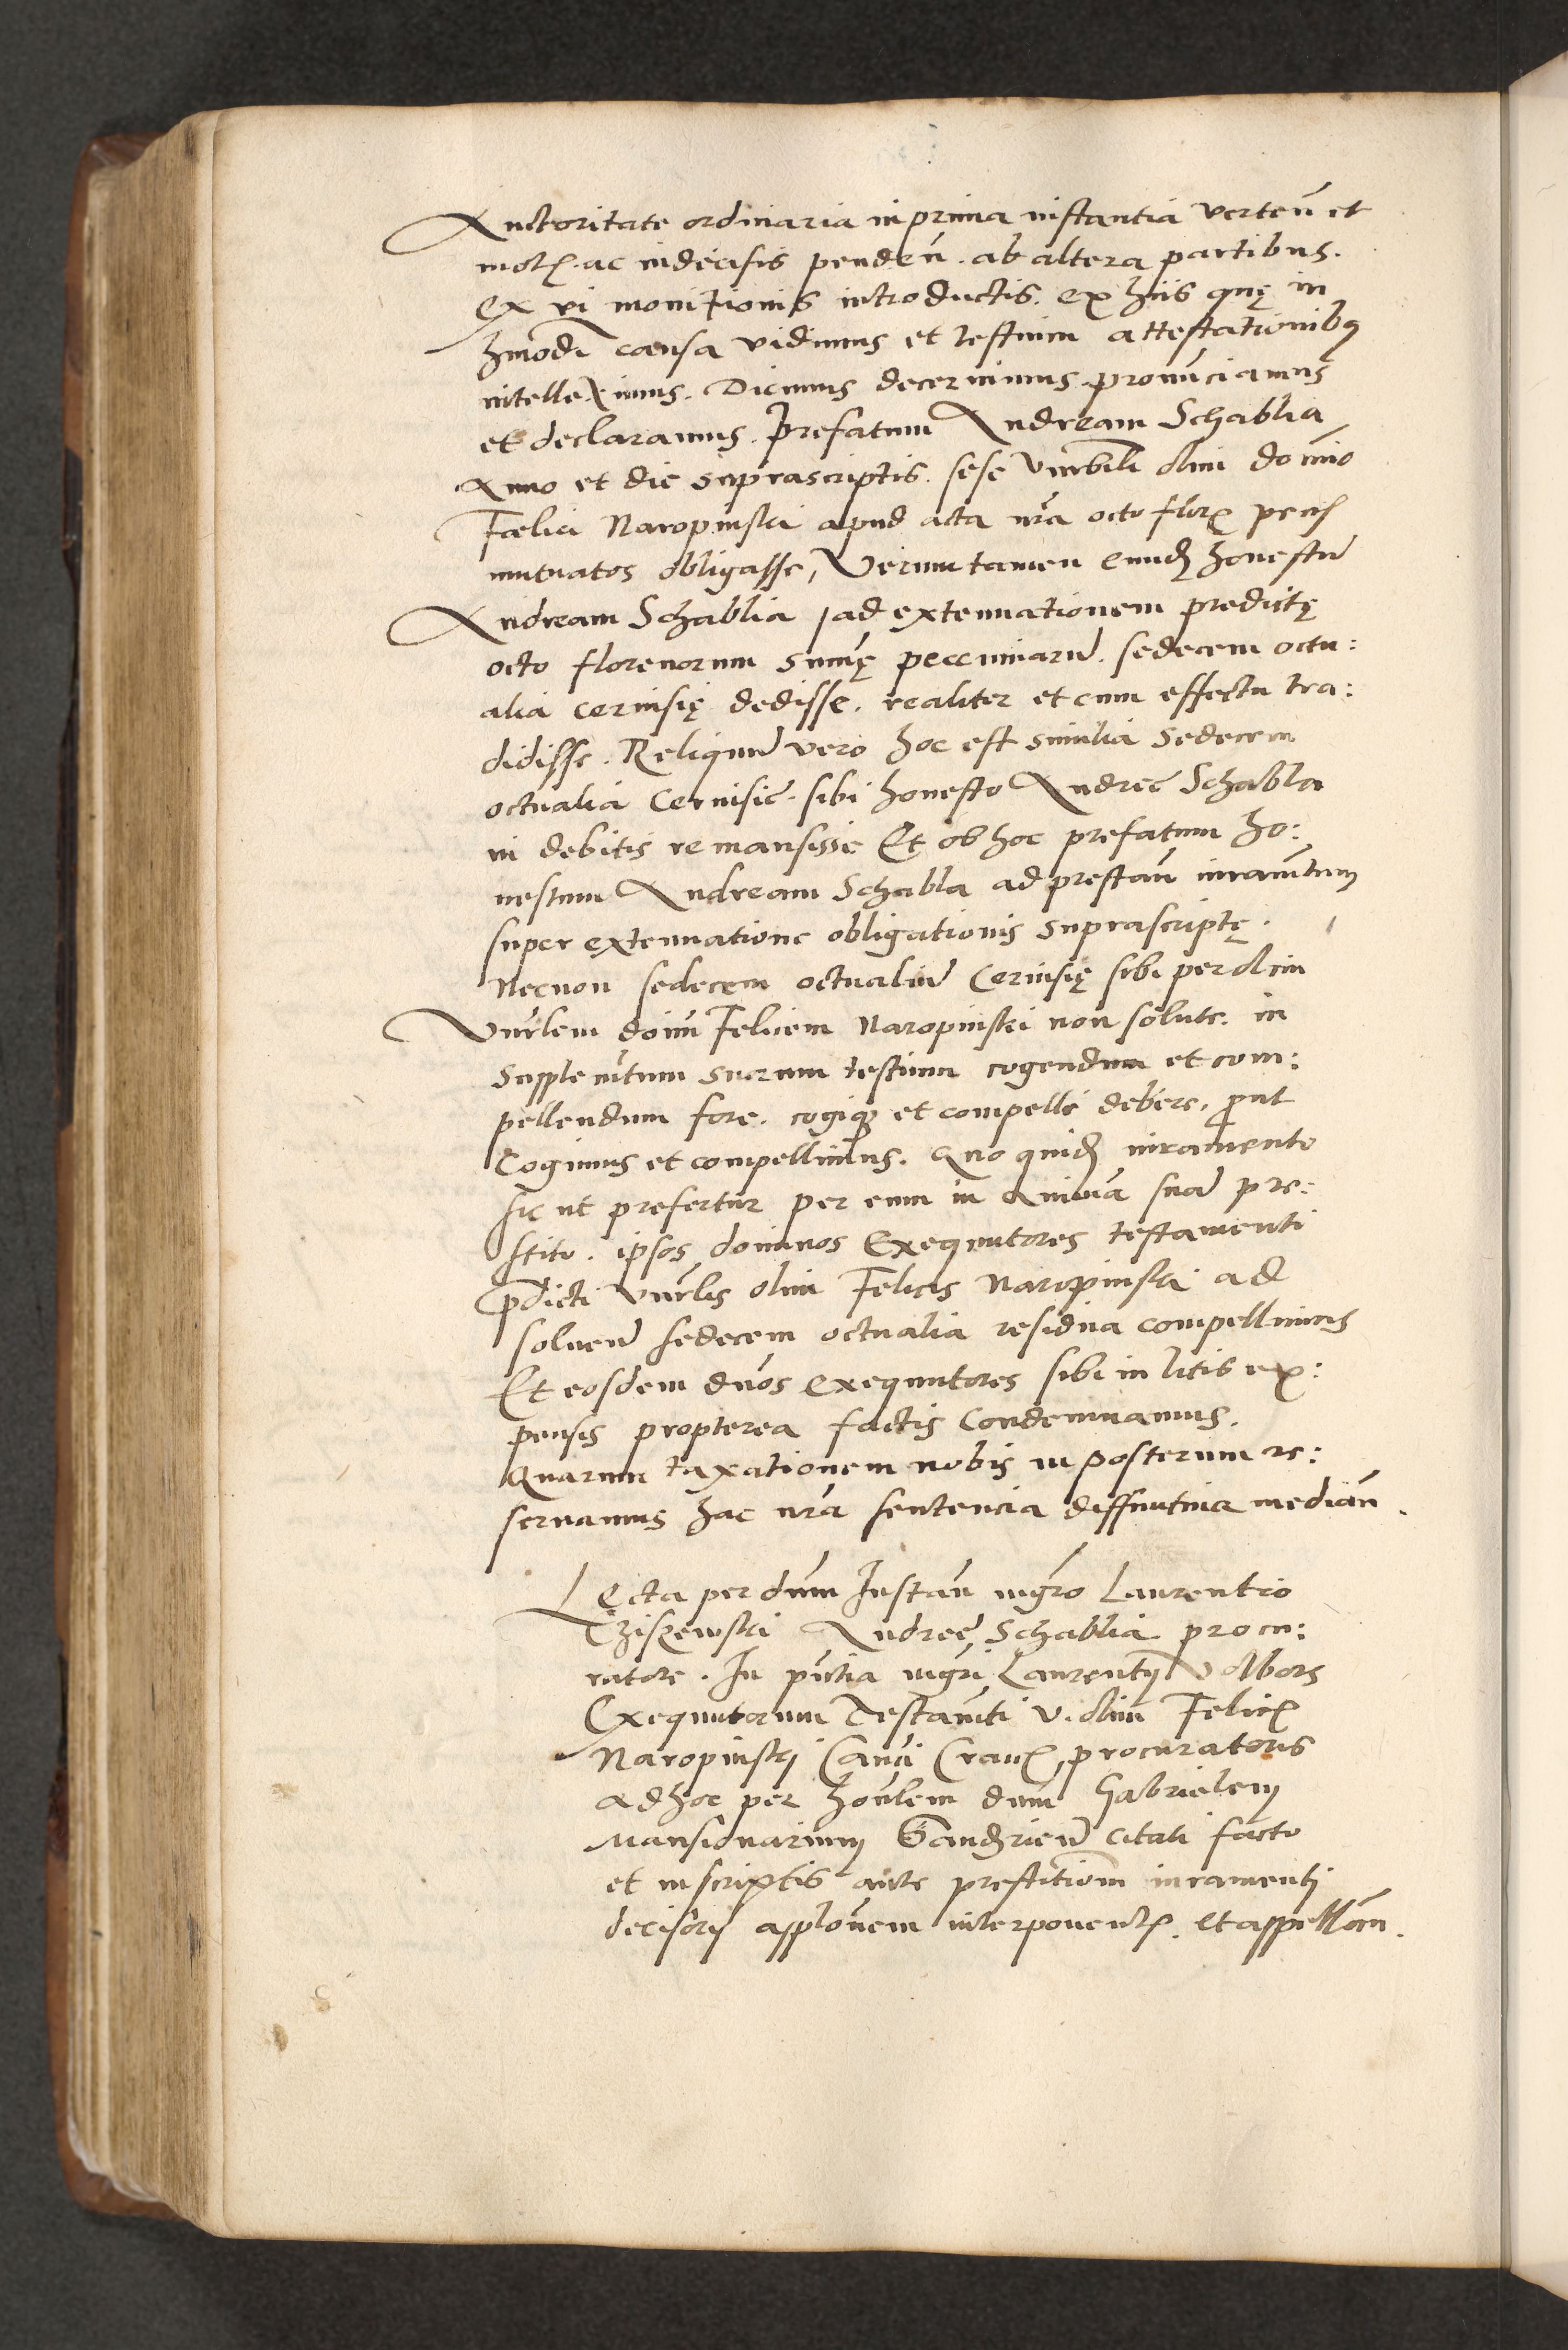 Auctoritate ordinaria in prima instantia verteñ et
mot. ac indecisis pendeñ. ab altera partibus.
Ex vi monitionis introductis. Ex hiis quę in
hmodi causa vidimus et testium attestationibq
intelleximus. Dicimus decernimus pronunciamus
et declaramus. Prefatum Andream Schablia
Anno et die suprascriptis. sese Vnrbili olim domino
Fælici Naropinski apud acta nra octo flor pecc
mutuatos obligasse, Verumtamen eund honestu
Andream Schablia, ad extenuationem predictę
octo florenorum sumę peccuniaru. sedecem octu:
alia ceruisię dedisse. realiter et cum effectu tra:
didisse. Reliquu vero hoc est similia sedecem
octualia Ceruisie. sibi honesto Andree Schabla
in debitis remansisse Et ob hoc prefatum ho:
nestum Andream Schabla ad prestan iuramtum
super extenuatione obligationis suprascriptę.
Necnon sedecem octualiu Ceruisię sibi per olim
Vnrlem doim Felicem Naropinski non solute. in
Supplemtum suorum testium cogendum et com:
pellendum fore. cogiq et compelli debere, put
Cogimus et compellimus. Quo quid iuramento
sic ut prefertur per eum in Anima sua pre:
stito. ipsos dominos Exequutores testamenti
pdicti Vnrlis olim Felicis Naropinski ad
soluen sedecem octualia residua compellimus
Et eosdem dnos exequutores sibi in litis ex:
pensis propterea factis Condemnamus.
Quarum taxationem nobis in posterum re:
seruamus hac nra sentencia diffinitiua median.
Lecta per dnm Instan mgro Laurentio
Andree Schablia procu:
ratore. In pntia mgri Laurentij Volbors
Exequutorum Testamti V. olim Felic
Naropinskj Canci Crac, procuratoris
ad hoc per honlem dnm Gabrielem
Mansionarium citati facto
et in scriptis ante prestitiom iuramentj
decisorij applonem interponent. et appellom.